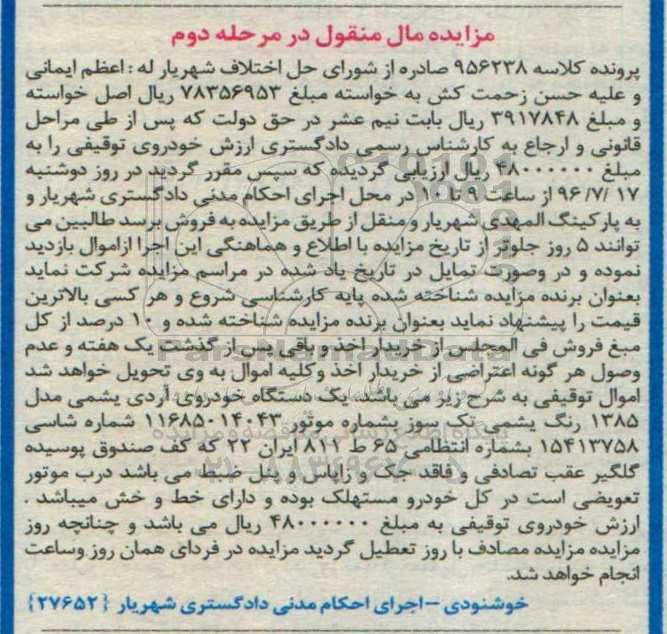 مزایده مال منقول در مرحله دوم
پرونده کلاسه ۹۵۶۲۳۸ صادره از شورای حل اختلاف شهریار له : اعظم ایمانی
و علیه حسن زحمت کش به خواسته مبلغ ۷۸۳۵۶۹۵۳ ریال اصل خواسته
و مبلغ ۳۹۱۷۸۴۸ ریال بابت نیم عشر در حق دولت که پس از طی مراحل
قانونی و ارجاع به کارشناس رسمی دادگستری ارزش خودروی توقیفی را به
مبلغ ۴۸۰۰۰۰۰۰ ریال ارزیابی گردیده که سپس مقرر گردید در روز دوشنبه
۱۷ /۷/ ۹۶ از ساعت ۹ تا ۱۱ در محل اجرای احکام مدنی دادگستری شهریار و
به پارکینگ المهدی شهریار و منقل از طریق مزایده به فروش برسد طالبین می
توانند ۵ روز جلوتر از تاریخ مزایده با اطلاع و هماهنگی این اجرا ازاموال بازدید
نموده و در وصورت تمایل در تاریخ یاد شده در مراسم مزایده شرکت نماید
بعنوان برنده مزایده شناخته شده پایه کارشناسی شروع و هر کسی بالاترین
قیمت را پیشنهاد نماید بعنوان برنده مزایده شناخته شده و ۱۰ درصد از کل
مبغ فروش فی المجلس از خریدار اخذ و باقی پس از گذشت یک هفته و عدم
وصول هر گونه اعتراضی از خریدار اخذ وکلیه اموال به وی تحویل خواهد شد
اموال توقیفی به شرح زیر می باشد. یک دستگاه خودروی آردی یشمی مدل
۱۳۸۵ رنگ یشمی تک سوز بشماره موتور ۱۱۶۸۵۰۱۴۰۴۳ شماره شاسی
۱۵۴۱۳۷۵۸ بشماره انتظامی ۶۵ ط ۸۱۱ ایران ۲۲ که کف صندوق پوسیده
گلگیر عقب تصادفی و فاقد جک و زاپاس و پنل ضبط می باشد درب موتور
تعویضی است در کل خودرو مستهلک بوده و دارای خط و خش میباشد .
ارزش خودروی توقیفی به مبلغ ۴۸۰۰۰۰۰۰ ریال می باشد و چنانچه روز
مزایده مزایده مصادف با روز تعطیل گردید مزایده در فردای همان روز وساعت
انجام خواهد شد.
خوشنودی -اجرای احکام مدنی دادگستری شهریار {۲۷۶۵۲}
ParsNamadData